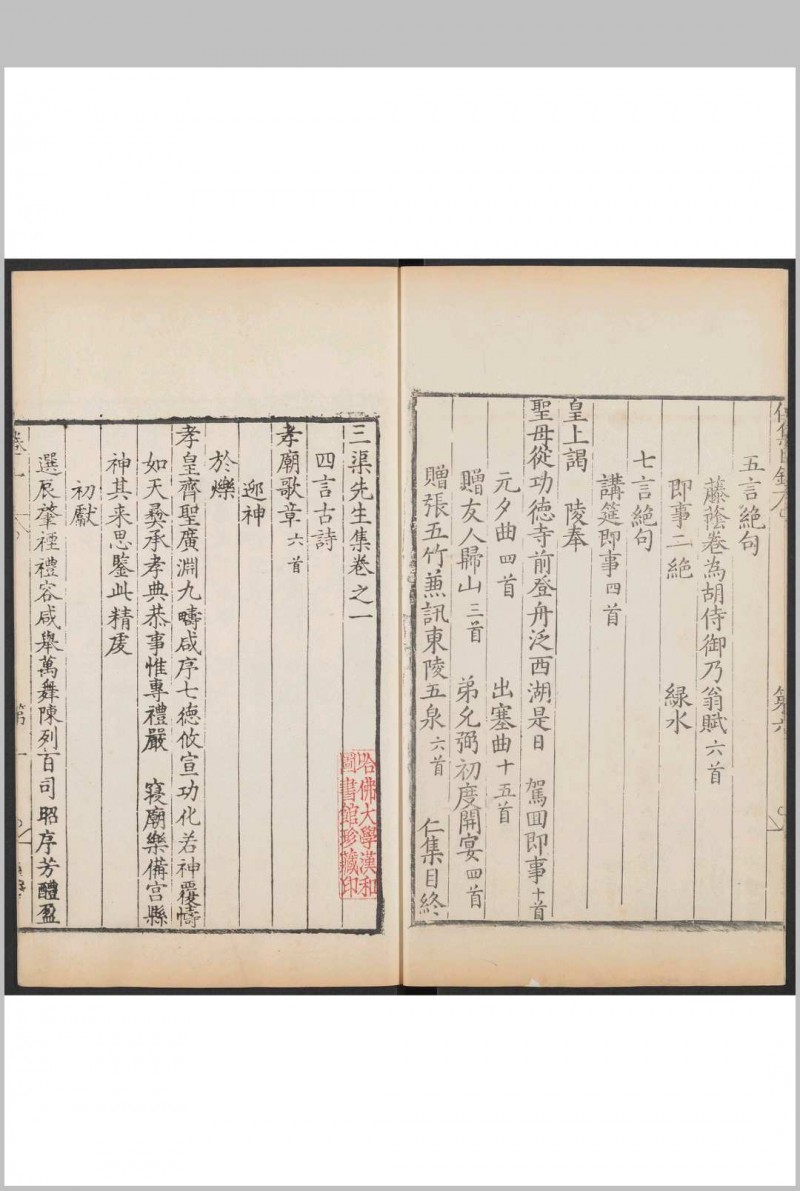 五言絶句
藤蔭卷為胡侍御乃翁賦六首
即事二絶 緑水
七言絶句
講筵即事四首
皇上謁 陵奉
聖母從功德寺前登舟泛西湖是日 駕回即事十首
元夕曲四首 出塞曲十五首
贈友人歸山三首 弟允弼初度開宴四首
贈張五竹兼訊東陵五泉六首 仁集目終
三渠先生集卷之一
四言古詩
孝廟歌章六首
迎神
於爍
孝皇齊聖廣淵九疇咸序七德攸宣功化若神覆幬
如天彝承孝典恭事惟專禮嚴 寢廟樂備宮縣
神其来思鑒此精虔
初獻
選辰肇禋禮容咸舉萬舞陳列百司昭序芳醴盈
哈佛大學漢和
圖書館珍藏印